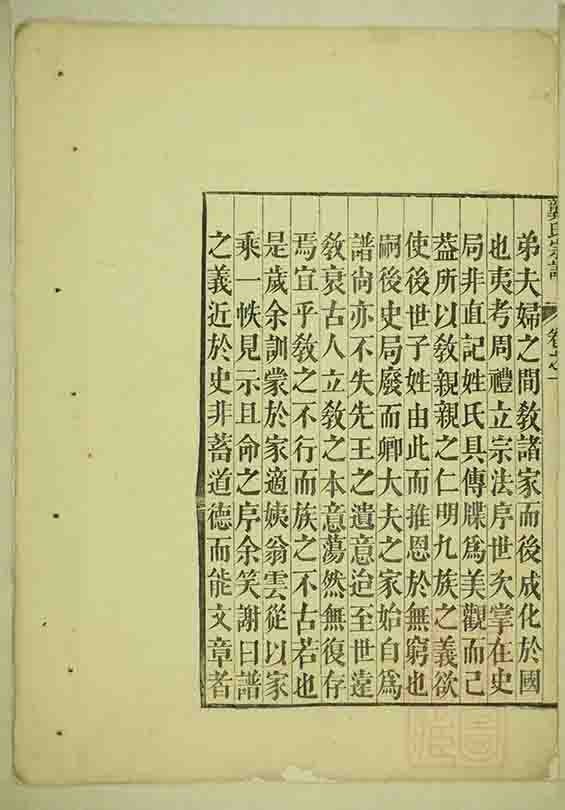 龔氏宗譜 卷之一
弟夫婦之間敎諸家而後成化於國
也夷考周禮立宗法序世次掌在史
局非直記姓氏具傳牒爲美觀而已
葢所以敎親親之仁明九族之義欲
使後世子姓由此而推恩於無窮也
嗣後史局廢而卿大夫之家始自爲
譜尙亦不失先王之遺意迨至世遠
敎衰古人立敎之本意蕩然無復存
焉宜乎敎之不行而族之不古若也
是歲余訓蒙於家適姨翁雲從以家
乘一帙見示且命之序余笑謝曰譜
之義近於史非蓄道德而能文章者